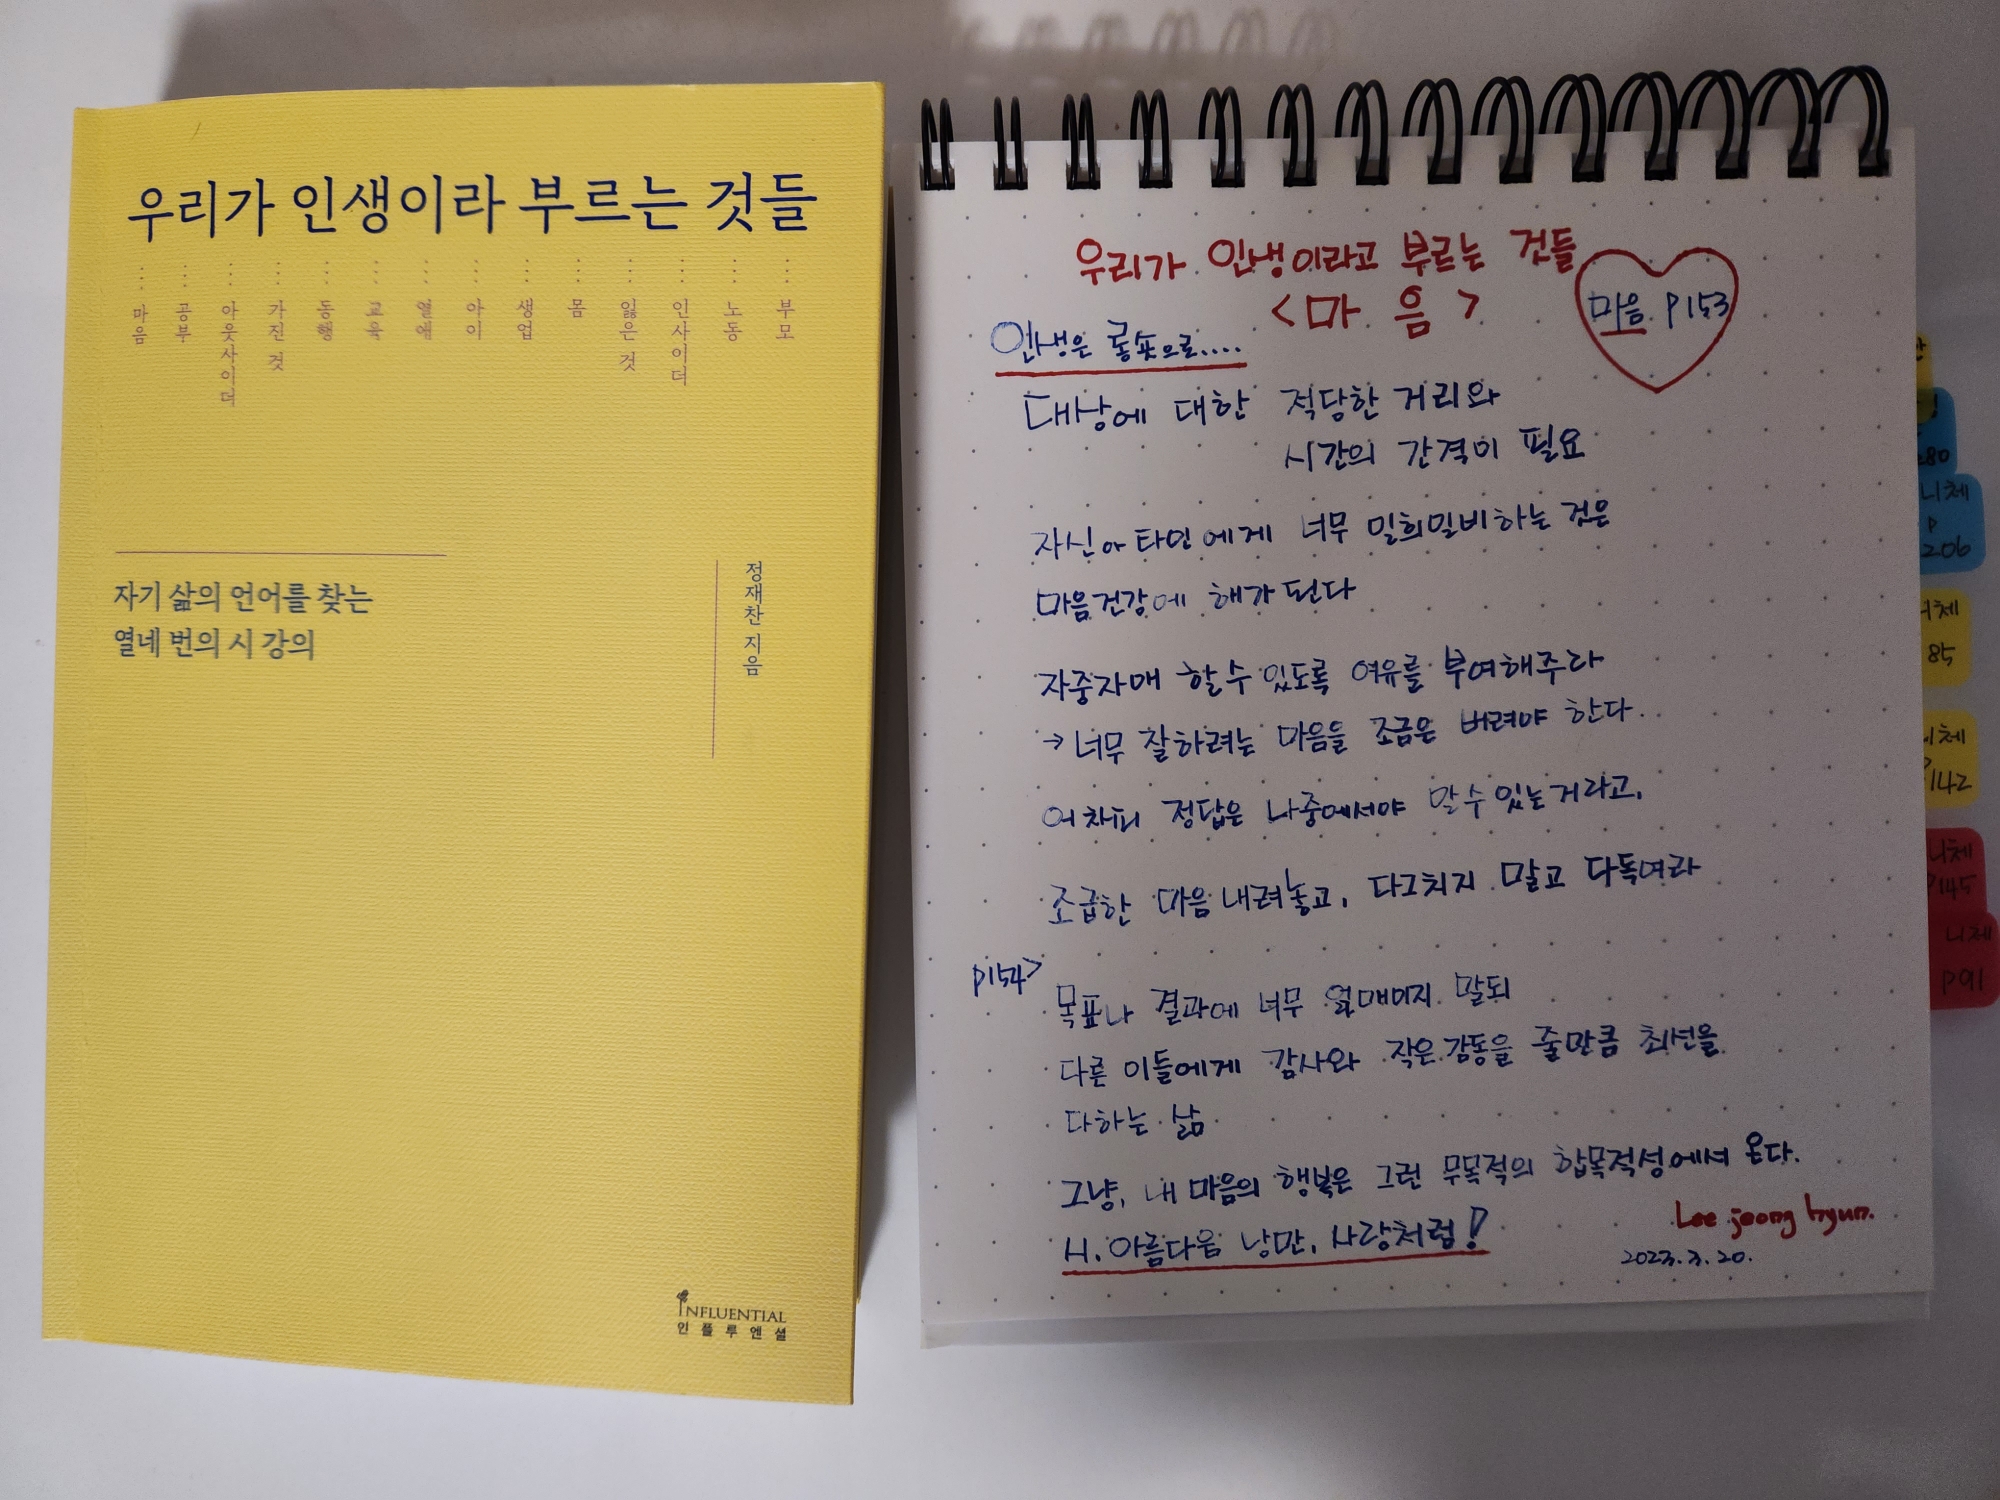 우리가 인생이라 부르는 것들
마음
공부
아웃사이더
가진 것
동행
교육
열애
아이
생업
몸
잃은 것
인사이더
노동
부모
자기 삶의 언어를 찾는
열네 번의 시 강의
정재찬 지음
INFLUENTIAL
인플루엔셜
우리가 인생이라고 부르는 것들
<마 음>
마음 P153
인생은 롱숏으로....
대상에 대한 적당한 거리와
시간의 간격이 필요
자신이 타인에게 너무 밀희밀비하는 것은
마음건강에 해가 된다
자중자애 할 수 있도록 여유를 부여해주라
→ 너무 잘하려는 마음을 조금은 버려야 한다.
어차피 정답은 나중에서야 알 수 있는거라고,
조급한 마음 내려놓고, 다그치지 말고 다독여라
P154>
목표나 결과에 너무 얽매이지 말되
다른 이들에게 감사와 작은 감동을 줄만큼 최선을
다하는 삶
그냥, 내 마음의 행복은 그런 무목적의 합목적성에서 온다.
시. 아름다움 낭만, 사랑처럼!
Lee jeong hyun.
2023.3.20.
280
니체
P
206
니체
85
니체
P142
니체
P145
니체
P91